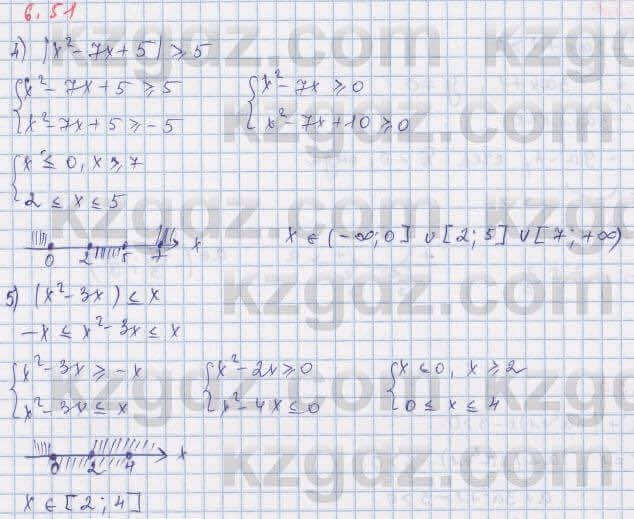 6.51
4) |x² - 7x + 5| ⩾ 5
{x² - 7x + 5 ⩾ 5 {x² - 7x ⩾ 0
{x² - 7x + 5 ⩾ -5 {x² - 7x + 10 ⩾ 0
{x ≤ 0, x ⩾ 7
{2 ≤ x ≤ 5
0 2 5 7 x x ∈ (-∞; 0] ∪ [2; 5] ∪ [7; +∞)
5) (x² - 3x) ≤ x
-x ≤ x² - 3x ≤ x
{x² - 3x ⩾ -x {x² - 2x ⩾ 0 {x ≤ 0, x ⩾ 2
{x² - 3x ≤ x {x² - 4x ≤ 0 {0 ≤ x ≤ 4
0 2 4 x
x ∈ [2; 4]
kzgdz.com
kzgdz.com
kzgdz.com
kzgdz.com
kzgdz.com
kzgdz.com